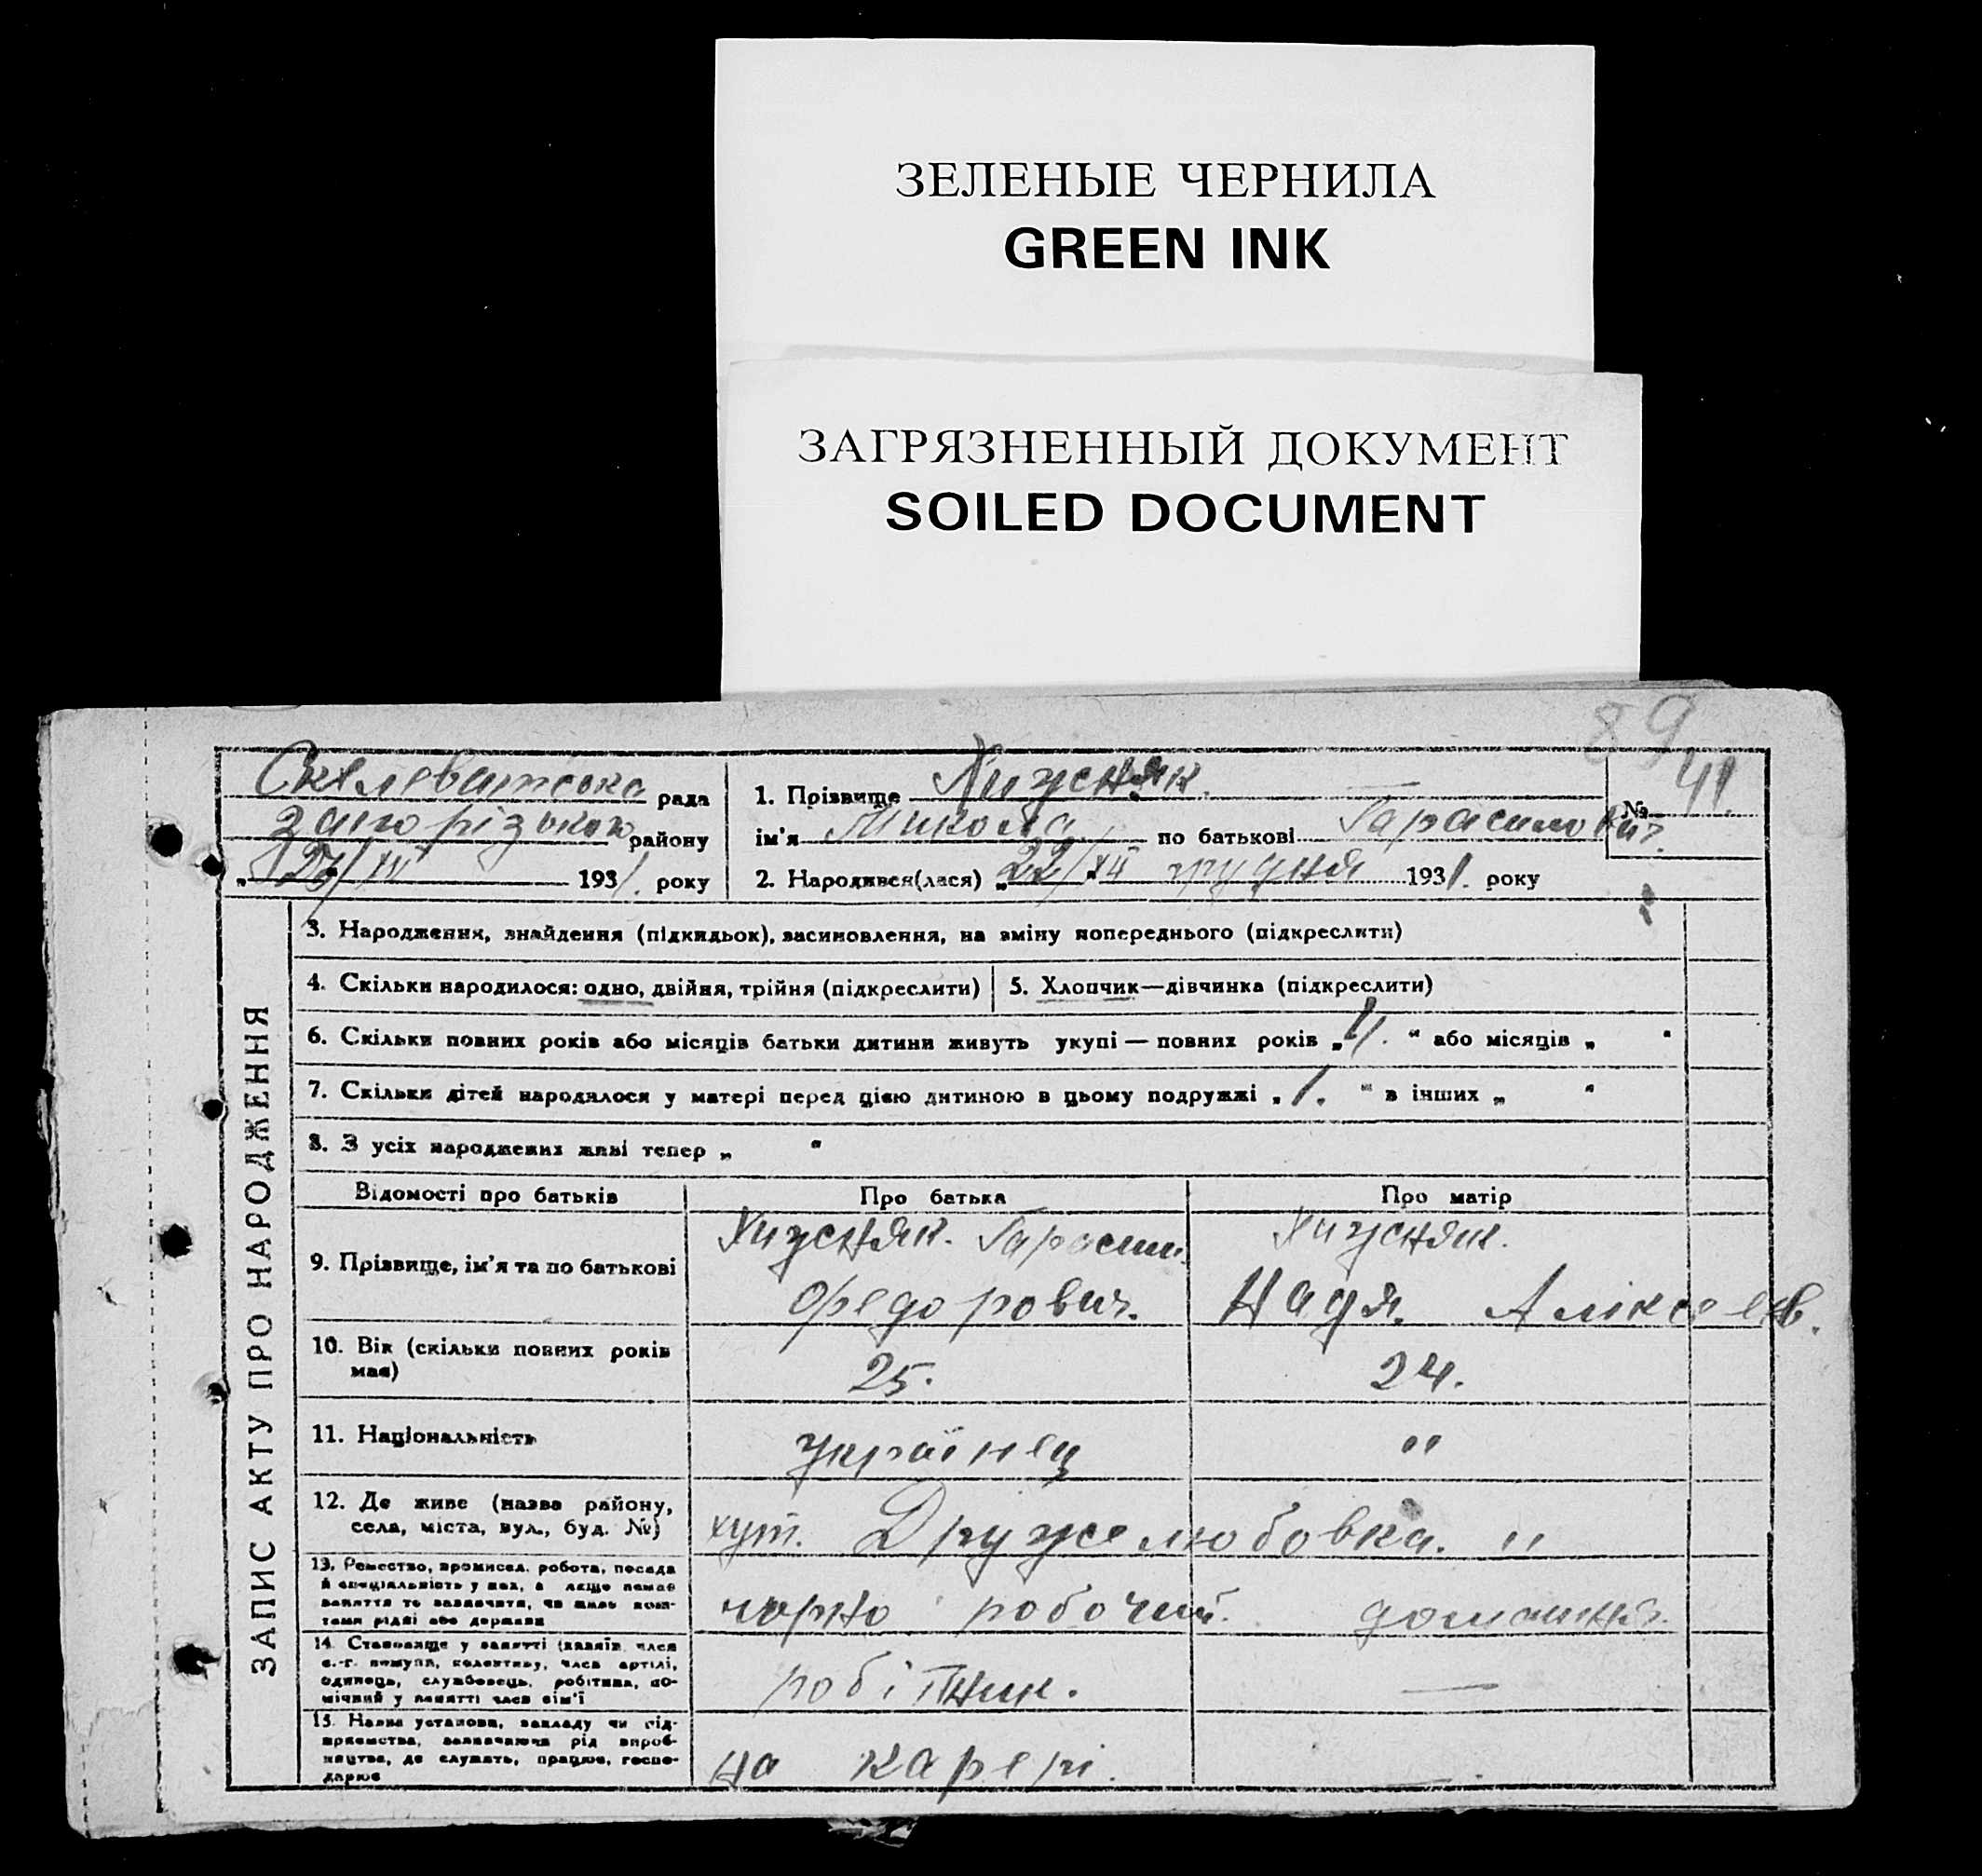 ЗЕЛЕНЫЕ ЧЕРНИЛА
GREEN INK
ЗАГРЯЗНЕННЫЙ ДОКУМЕНТ
SOILED DOCUMENT
89
рада
району
193 1. року
1. Прізвище Хижсняк.
ім'я Микола по батькові Гарасимович.
2. Народився(лася) „22/XII грудня 1931. року
№ 41.
ЗАПИС АКТУ ПРО НАРОДЖЕННЯ
3. Народження, знайдення (підкидьок), засиновлення, на зміну попереднього (підкреслити)
4. Скільки народилося: одно, двійня, трійня (підкреслити)
5. Хлопчик—дівчинка (підкреслити)
6. Скільки повних років або місяців батьки дитини живуть укупі — повних років „4." або місяців „ "
7. Скільки дітей народилося у матері перед цією дитиною в цьому подружжі „1." в інших „ "
8. З усіх народжених живі тепер „ "
Відомості про батьків
Про батька
Про матір
9. Прізвище, ім'я та по батькові
Хижсняк. Гарасим
Федорович.
Хижсняк.
Надя.
10. Вік (скільки повних років
має)
25.
24.
11. Національність
українец
"
12. Де живе (назва району,
села, міста, вул., буд. №)
хут. Дружелюбовка. "
13. Ремество, промисел, робота, посада
й спеціальність у них, а якщо немає
заняття то зазначити, чи живе кош-
тами рідні або держави
чорно робочий.
14. Становище у занятті (хазяїн, член
с.-г. комуни, колективу, член артілі,
одинець, службовець, робітник, по-
мічний у занятті член сім'ї
робітник.
—
15. Назва установи, закладу чи під-
приємства, зазначаючи рід вироб-
ництва, де служить, працює, госпо-
дарює
на карері.
—